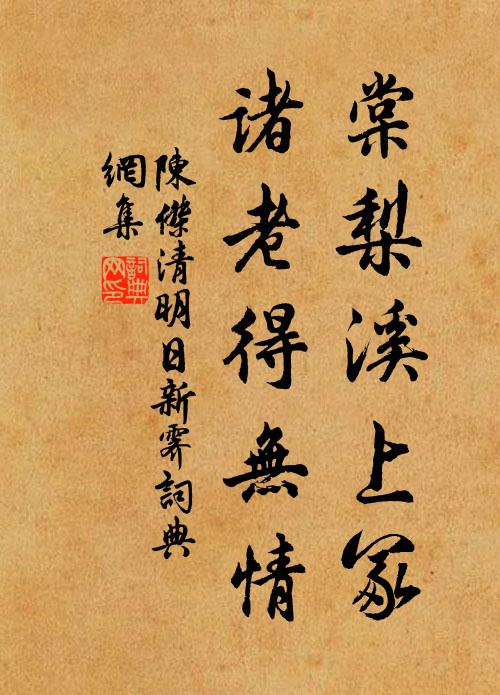 棠梨溪上冢
諸老得無情
陳傑清明日新霽詞典
網集
詞典網印